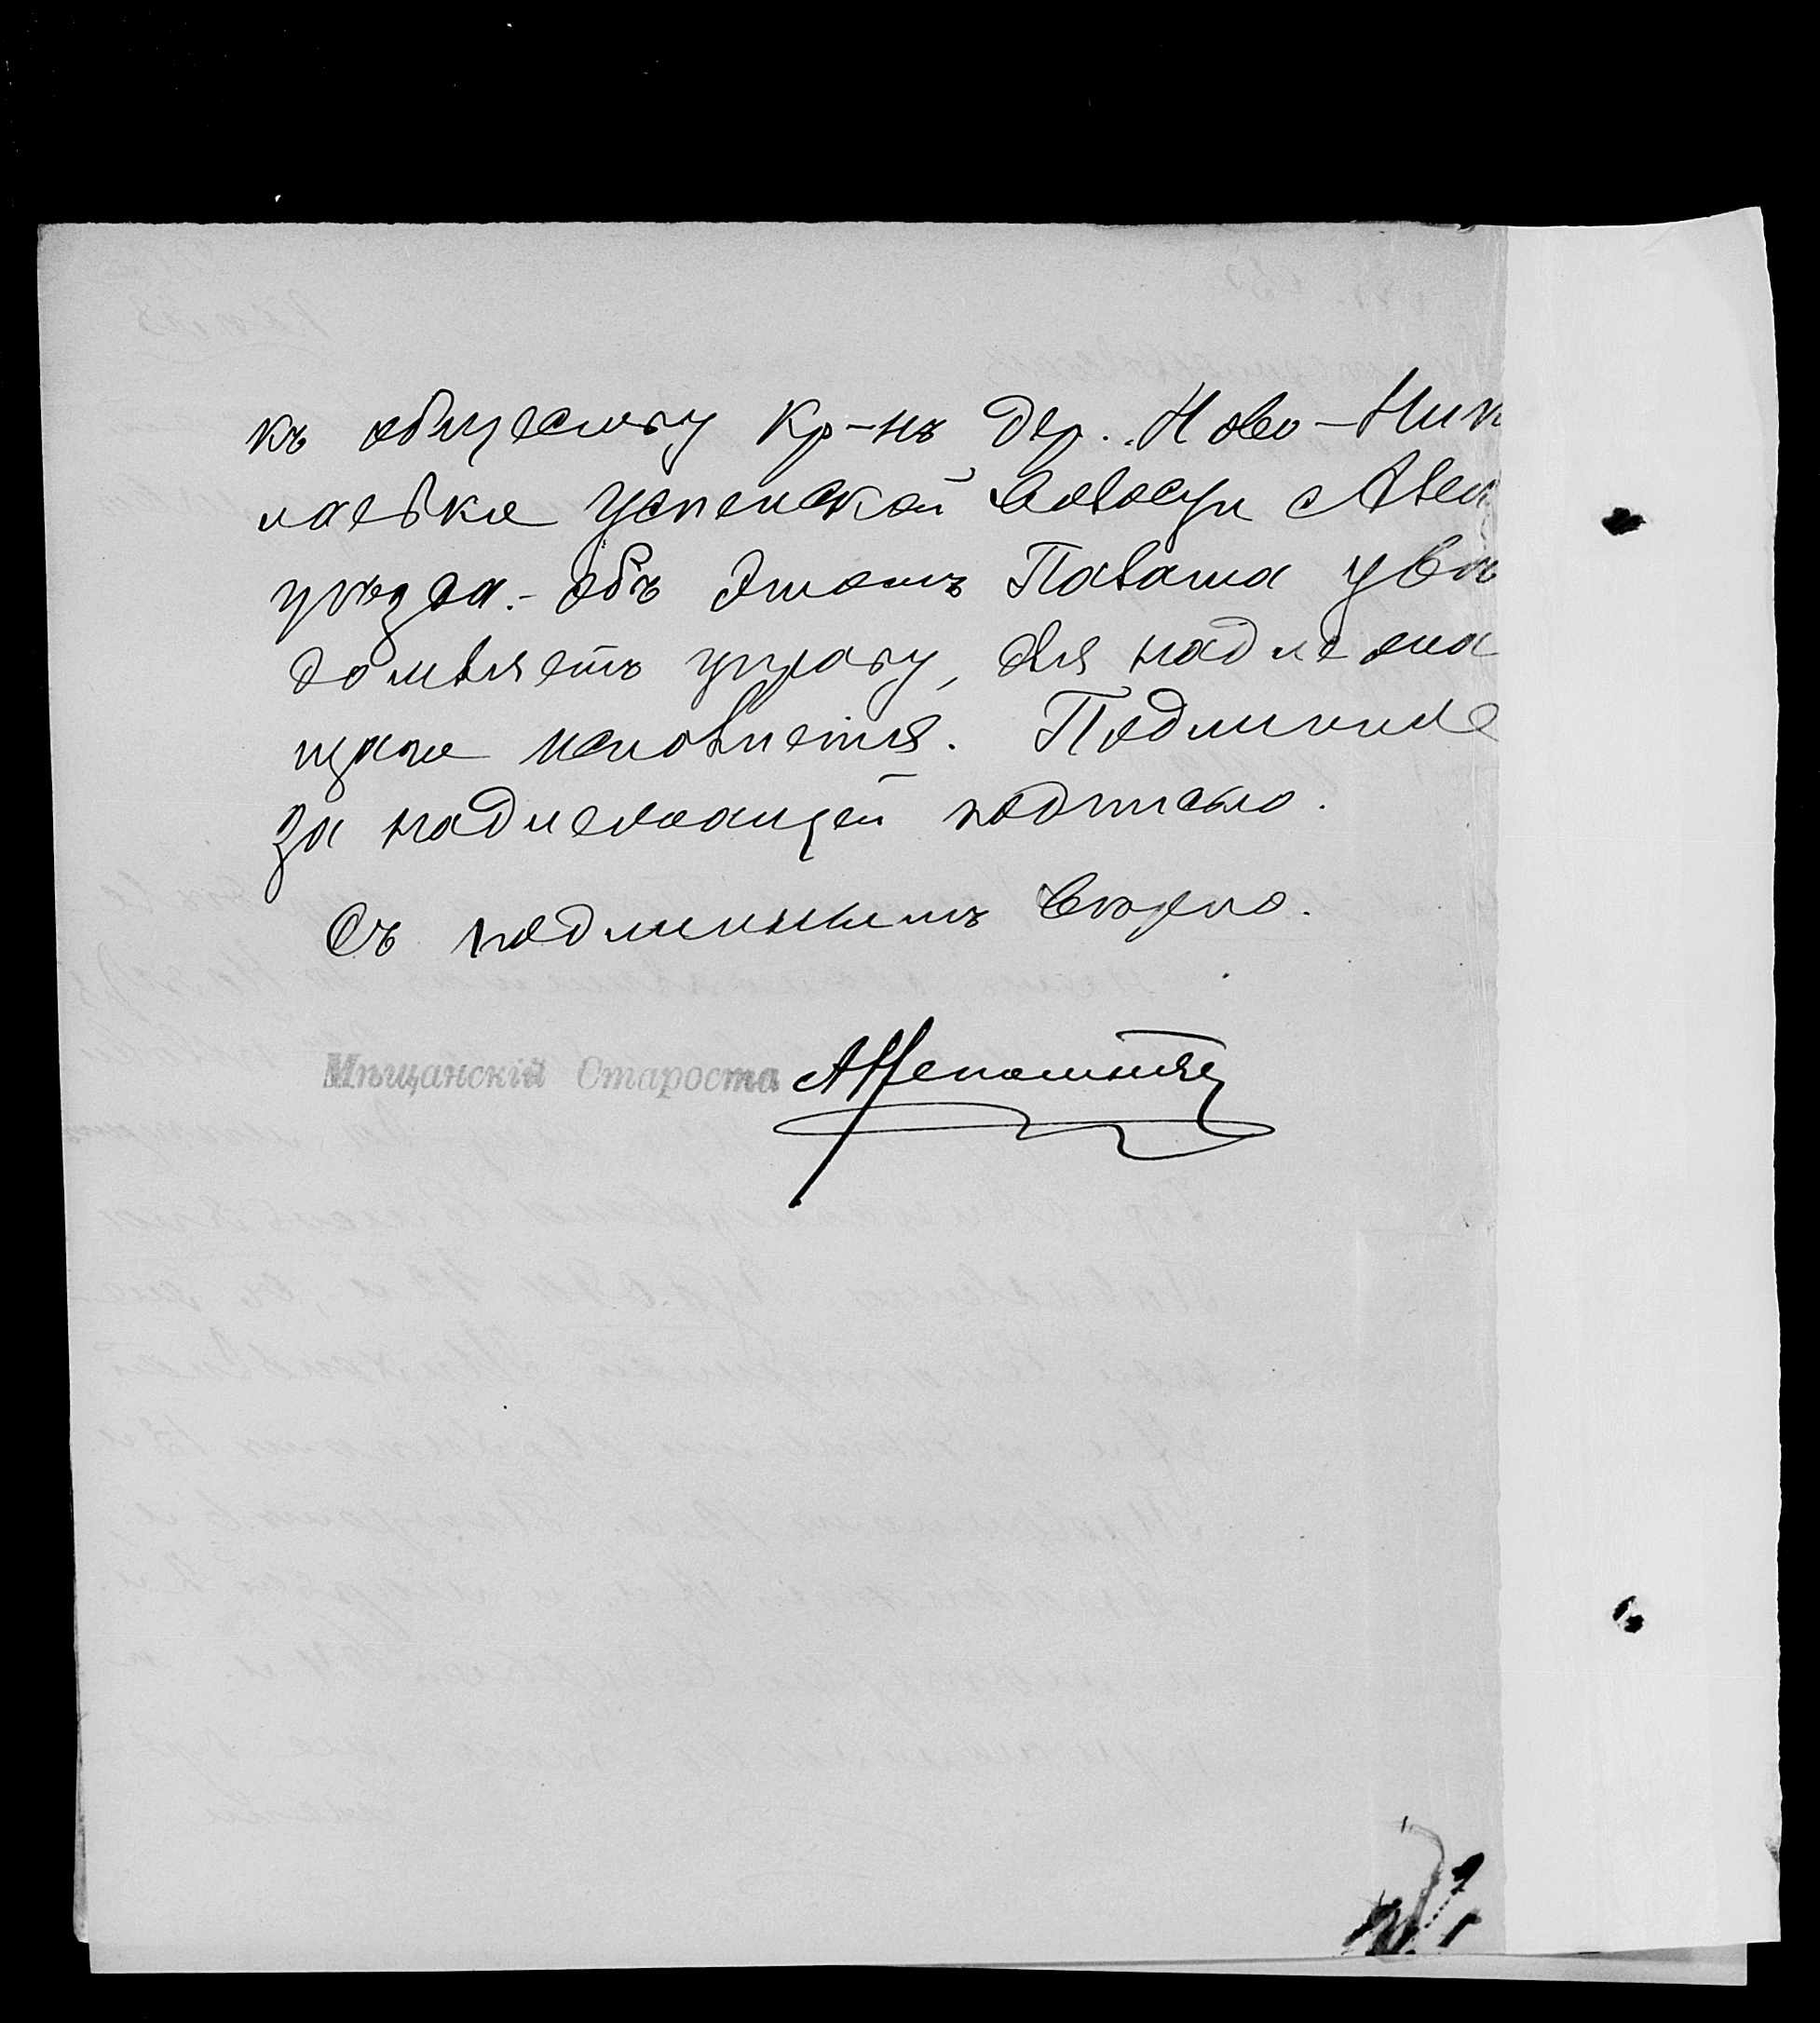 къ обществу кр-нъ дер. Ново-Ник
лаевка Успенской волости Алек
уѣзда. - Объ этомъ Палата увѣ
домляетъ управу, для надлежа
щаго исполненія. Подлинное
за надлежащей подписью.
Съ подлиннымъ вѣрно.
Мѣщанскій Староста